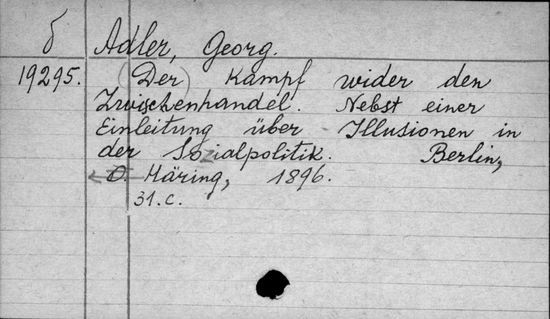 δ Adler, Georg.
19295. (Der) Kampf wider den
Zwischenhandel. Nebst einer
Einleitung über Illusionen in
der Sozialpolitik. Berlin,
O. Häring, 1896.
31.c.